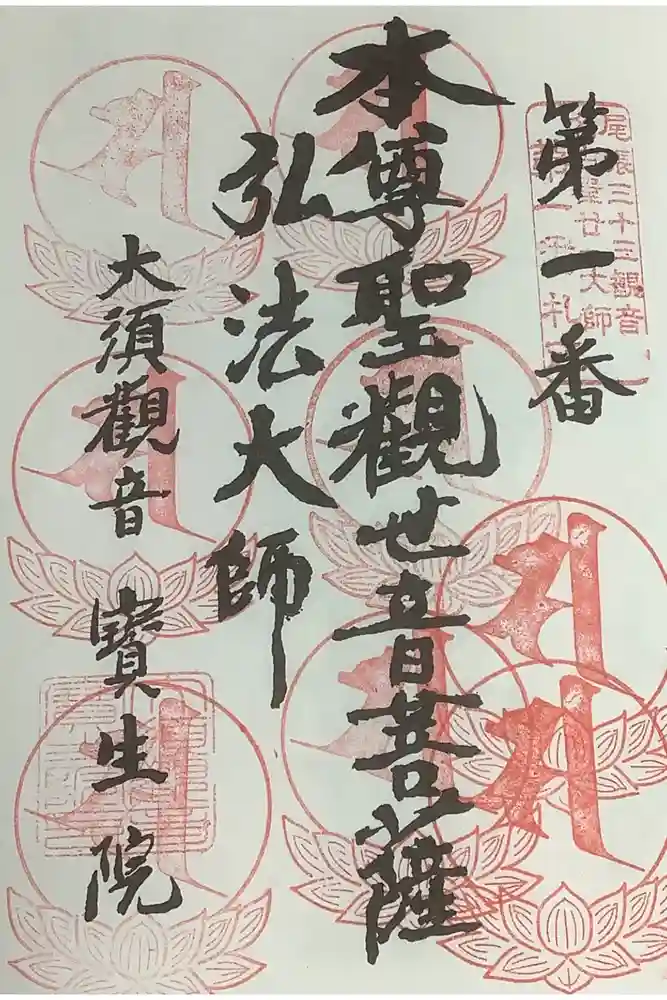 第一番
尾張三十三観音
本尊聖觀世音菩薩
弘法大師
大須觀音 寶生院